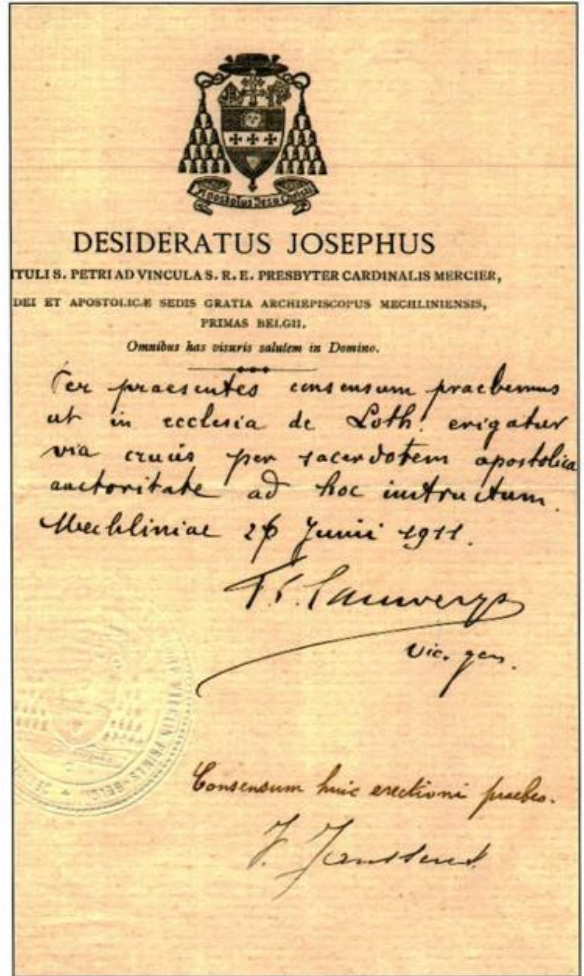 Apostolus Jesu Christi
DESIDERATUS JOSEPHUS
ITULI S. PETRI AD VINCULA S. R. E. PRESBYTER CARDINALIS MERCIER,
DEI ET APOSTOLICÆ SEDIS GRATIA ARCHIEPISCOPUS MECHLINIENSIS,
PRIMAS BELGII.
Omnibus has visuris salutem in Domino.
Per praesentes consensum praebemus
ut in ecclesia de Loth. erigatur
via crucis per sacerdotem apostolica
auctoritate ad hoc instructum.
Mechliniae 26 Junii 1911.
Lauwerys
vic. gen.
Consensum huic erectioni praebeo.
J. Janssens